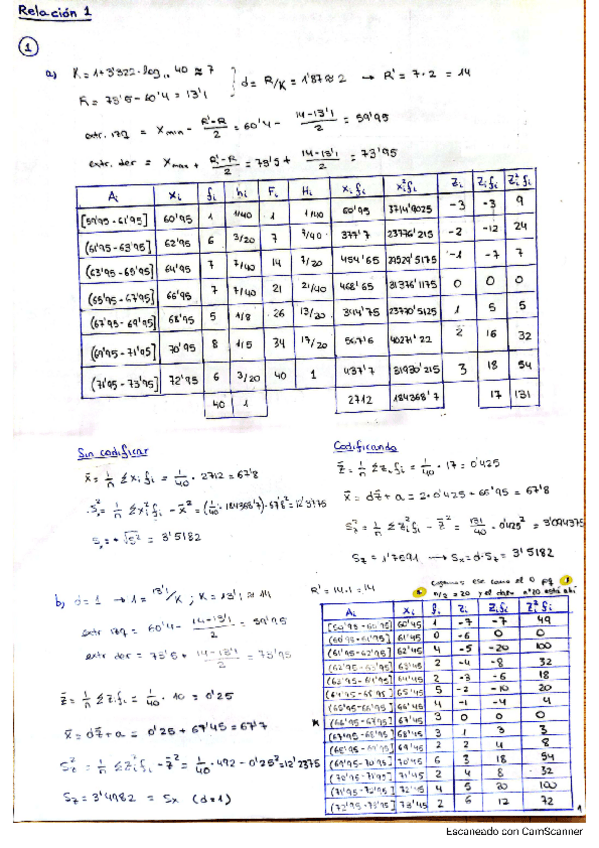 Relación 1
1
a) K = 1+3'322·log₁₀ 40 ≈ 7
R = 73'5 - 60'4 = 13'1
d = R/K = 1'87 ≈ 2 → R' = 7·2 = 14
extr. izq = Xmin - (R'-R)/2 = 60'4 - (14-13'1)/2 = 59'95
extr. der = Xmax + (R'-R)/2 = 73'5 + (14-13'1)/2 = 73'95
Ai xi fi hi Fi Hi xi fi xi² fi zi zi fi zi² fi
[59'95 - 61'95] 60'95 1 1/40 1 1/40 60'95 3714'9025 -3 -3 9
(61'95 - 63'95] 62'95 6 3/20 7 7/40 377'7 23776'215 -2 -12 24
(63'95 - 65'95] 64'95 7 7/40 14 7/20 454'65 29529'5175 -1 -7 7
(65'95 - 67'95] 66'95 7 7/40 21 21/40 468'65 31376'1175 0 0 0
(67'95 - 69'95] 68'95 5 1/8 26 13/20 344'75 23770'5125 1 5 5
(69'95 - 71'95] 70'95 8 1/5 34 17/20 567'6 40271'22 2 16 32
(71'95 - 73'95] 72'95 6 3/20 40 1 437'7 31930'215 3 18 54
40 1 2712 184368'7 17 131
Sin codificar
x̄ = 1/n Σxi fi = 1/40 · 2712 = 67'8
= 1/n Σxi² fi - x̄² = (1/40 · 184368'7) - 67'8² = 12'3775
= + = 3'5182
Codificando
z̄ = 1/n Σzi fi = 1/40 · 17 = 0'425
x̄ = dz̄ + a = 2·0'425 + 66'95 = 67'8
Sz² = 1/n Σzi² fi - z̄² = 131/40 - 0'425² = 3'094375
Sz = 1'7591 → Sx = d·Sz = 3'5182
b) d = 1 → 1 = 13'1/K ; K = 13'1 ≈ 14
R' = 14·1 = 14
extr izq = 60'4 - (14-13'1)/2 = 59'95
extr der = 73'5 + (14-13'1)/2 = 73'95
z̄ = 1/n Σzi fi = 1/40 · 10 = 0'25
x̄ = dz̄ + a = 0'25 + 67'45 = 67'7
Sz² = 1/n Σzi² fi - z̄² = 1/40 · 492 - 0'25² = 12'2375
Sz = 3'4982 = Sx (d=1)
cogemos ese como el 0 pq
n/2 = 20 y el dato nº20 está ahí
Ai xi fi zi zi fi zi² fi
60'45 1 -7 -7 49
61'45 0 -6 0 0
(61'95 - 62'95] 62'45 4 -5 -20 100
(62'95 - 63'95] 63'45 2 -4 -8 32
(63'95 - 64'95] 64'45 2 -3 -6 18
(64'95 - 65'95] 65'45 5 -2 -10 20
(65'95 - 66'95] 66'45 4 -1 -4 4
* (66'95 - 67'95] 67'45 3 0 0 0
(67'95 - 68'95] 68'45 3 1 3 3
(68'95 - 69'95] 69'45 2 2 4 8
(69'95 - 70'95] 70'45 6 3 18 54
(70'95 - 71'95] 71'45 2 4 8 32
(71'95 - 72'95] 72'45 4 5 20 100
(72'95 - 73'95] 73'45 2 6 12 72
1
Escaneado con CamScanner